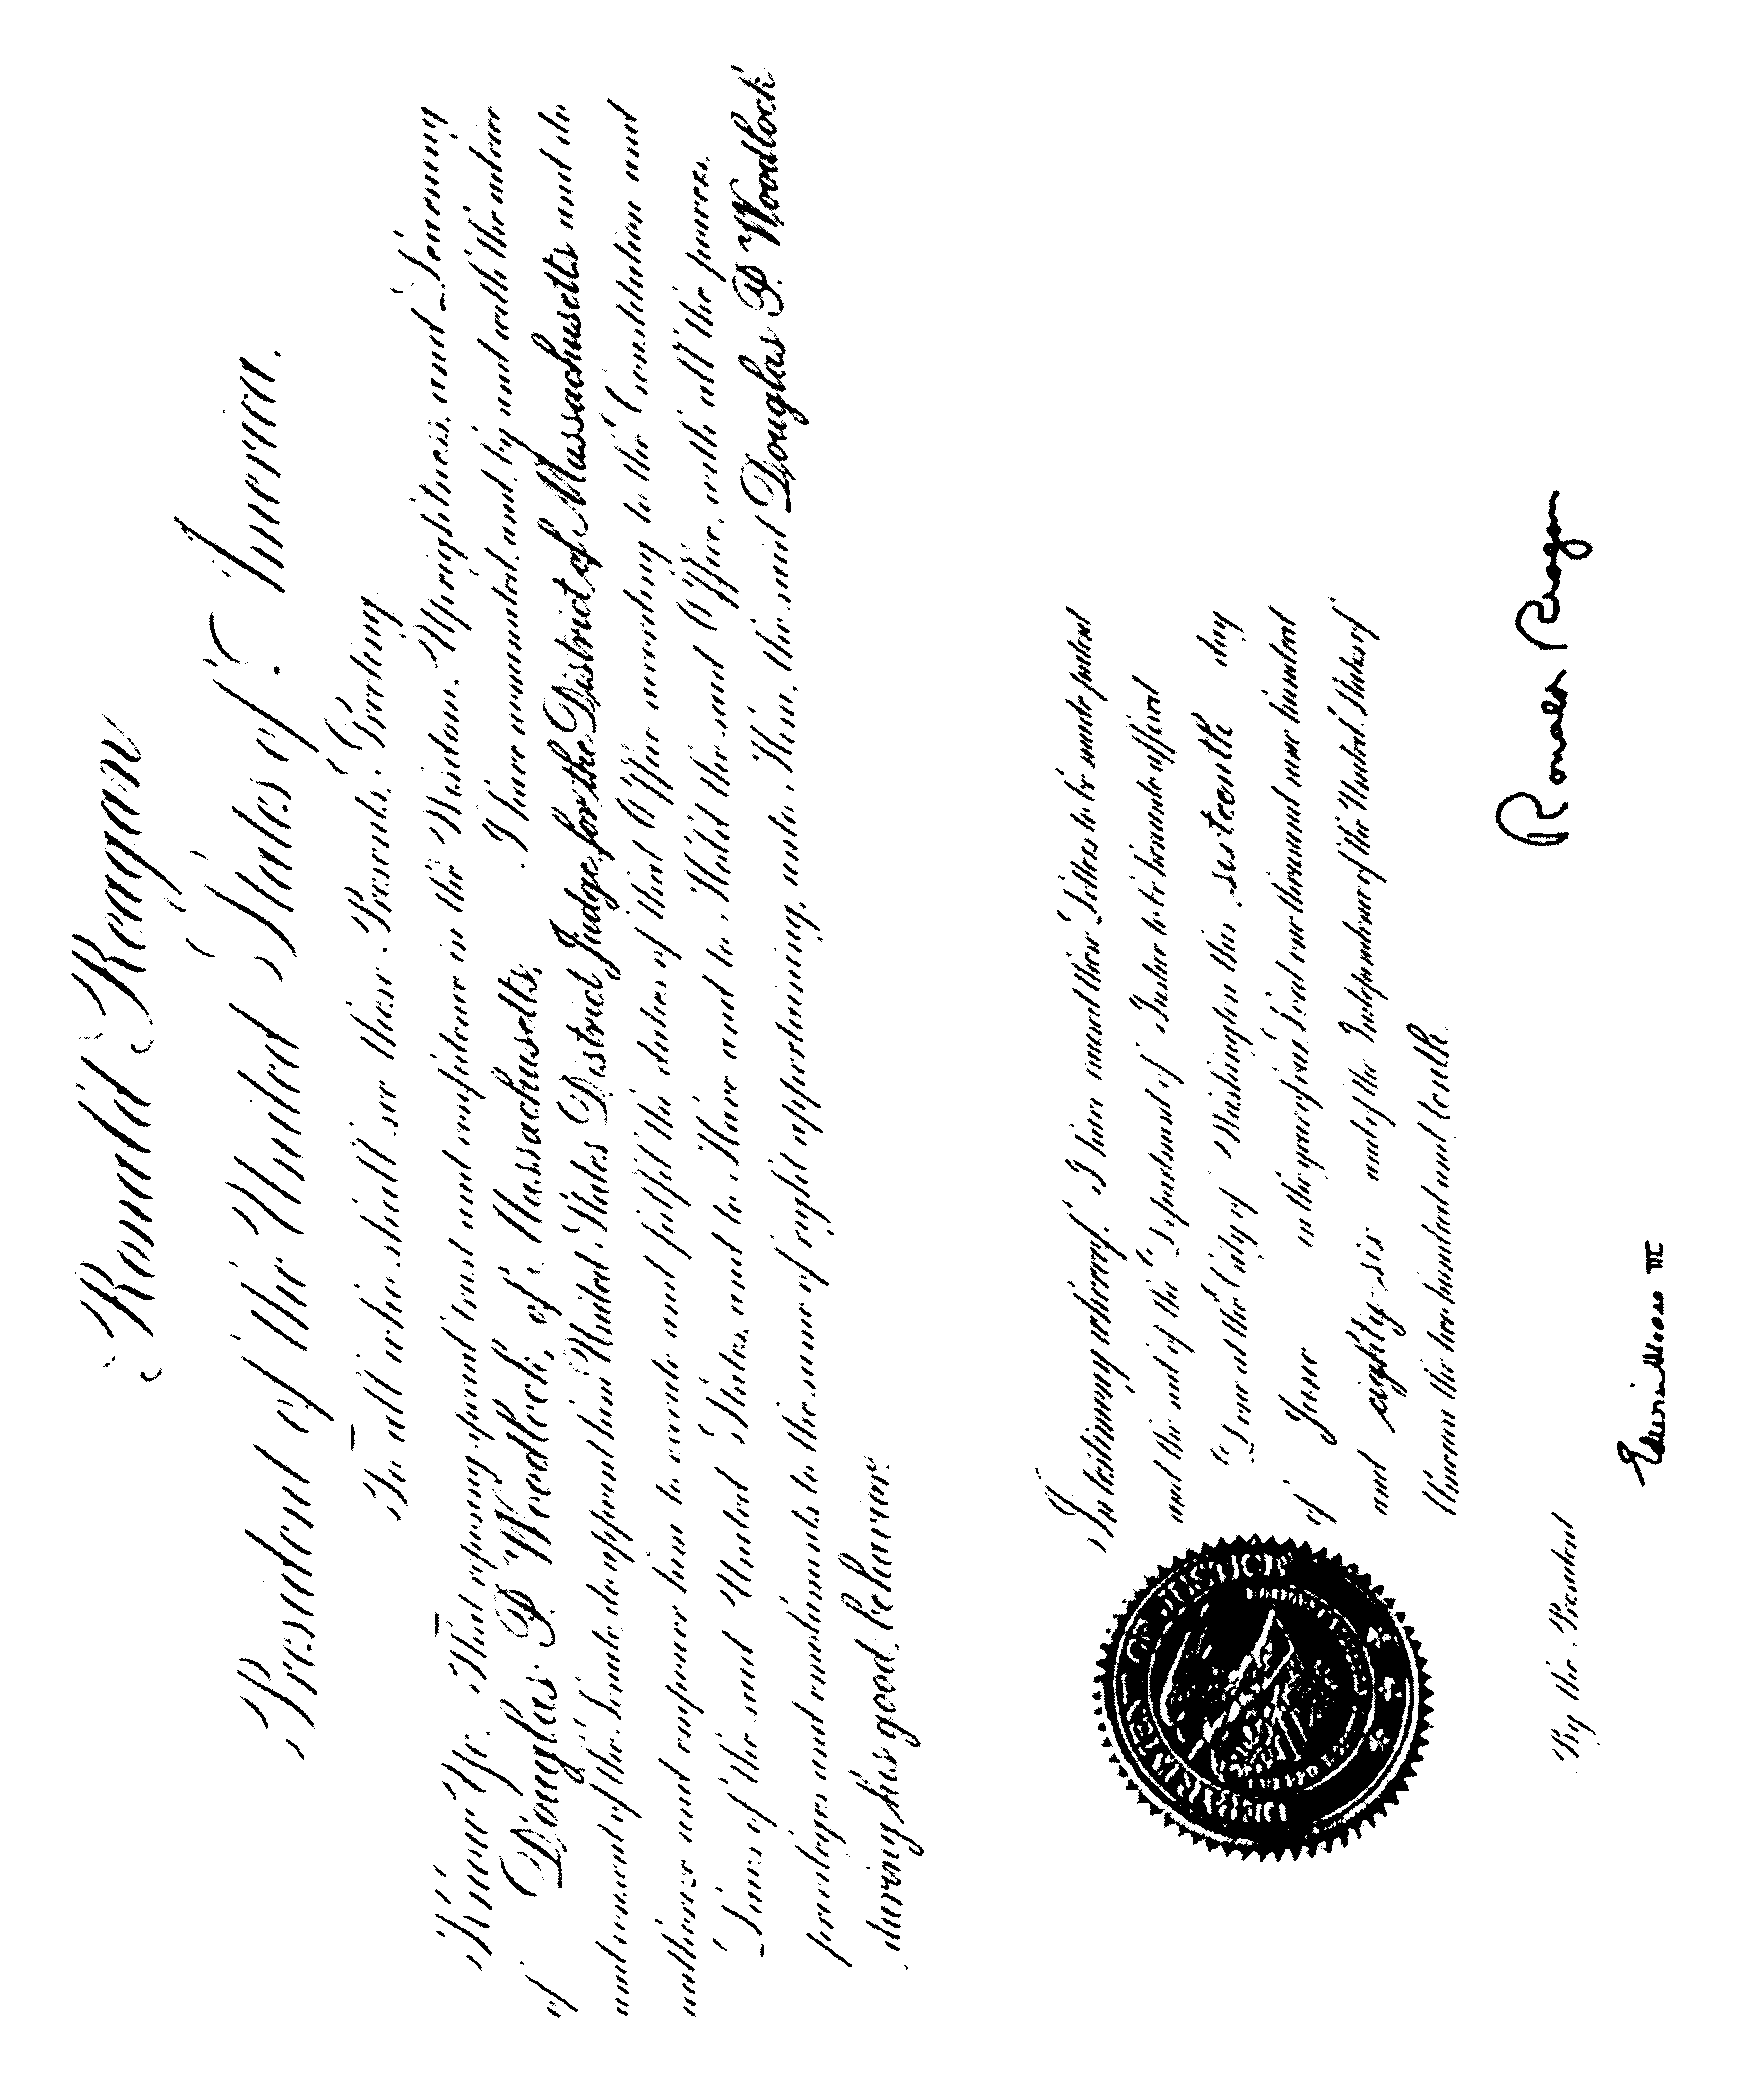 Ronald Reagan
President of the United States of America.
To all who shall see these Presents, Greeting
Know Ye. That reposing special trust and confidence in the Wisdom, Uprightness, and Learning
of Douglas P Woodlock, of Massachusetts, I have nominated, and, by and with the advice
and consent of the Senate do appoint him United States District Judge for the District of Massachusetts and do
authorize and empower him to execute and fulfil the duties of that Office according to the Constitution and
Laws of the said United States, and to Have and to Hold the said Office, with all the powers,
privileges and emoluments to the same of right appertaining, unto Him, the said Douglas P Woodlock
during his good behavior.
In testimony whereof, I have caused these Letters to be made patent
and the seal of the Department of Justice to be hereunto affixed
Done at the City of Washington this sixteenth day
of June in the year of our Lord one thousand nine hundred
and eighty-six and of the Independence of the United States of
America the two hundred and tenth.
Ronald Reagan
By the President
Edwin Meese III
DEPARTMENT OF JUSTICE